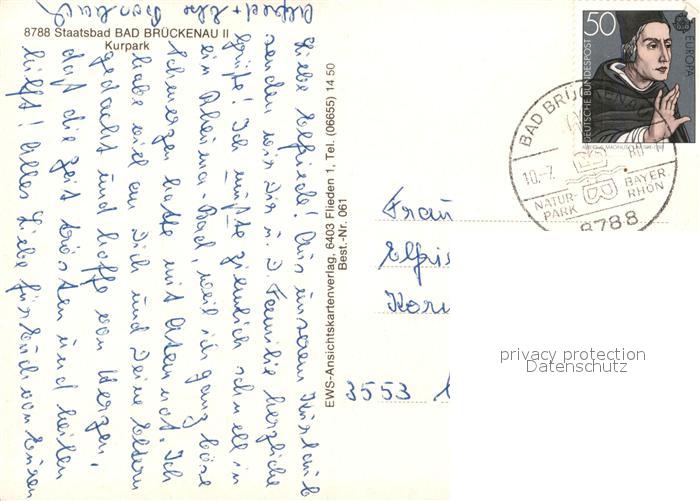 8788 Staatsbad BAD BRÜCKENAU II
Kurpark
Liebe Elfriede! Aus unserem Kurlaub
senden wir Dir u. D. Familie herzliche
Grüße! Ich mußte ziemlich schnell in
ein Rheuma-Bad, weil ich ganz böse
Schmerzen hatte mit Atemnot. Ich
habe viel an Dich und Deine Eltern
gedacht und hoffe von Herzen,
daß die Zeit trösten und heilen
hilft! Alles Liebe für Euch von Euren
EWS-Ansichtskartenverlag, 6403 Flieden 1, Tel. (06655) 14 50
Best.-Nr. 061
50
DEUTSCHE BUNDESPOST
EUROPA
BAD BRÜCKENAU
10.-7. 80
NATUR-
PARK
BAYER.
RHÖN
8788
Frau
3553
privacy protection
Datenschutz